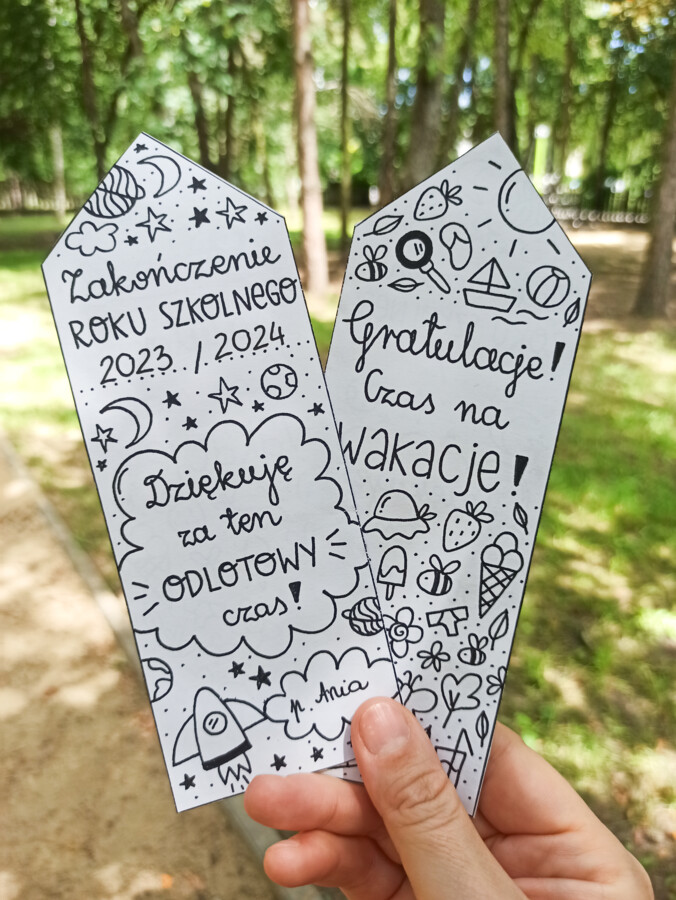 Zakończenie
ROKU SZKOLNEGO
2023 / 2024
Dziękuję
za ten
ODLOTOWY
czas!
p. Ania
Gratulacje!
Czas na
wakacje!